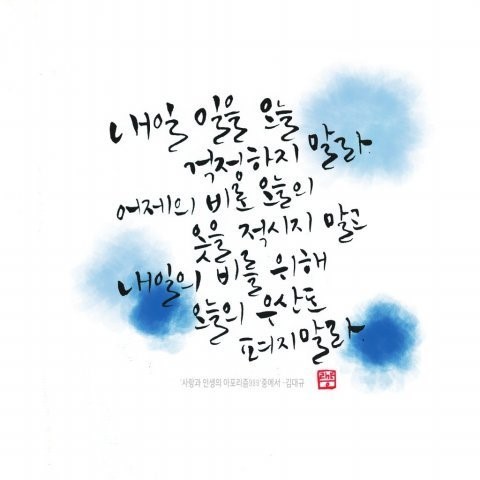 내일 일을 오늘
걱정하지 말라.
어제의 비로 오늘의
옷을 적시지 말고
내일의 비를 위해
오늘의 우산도
펴지말라.
'사랑과 인생의 아포리즘999'중에서 -김대규